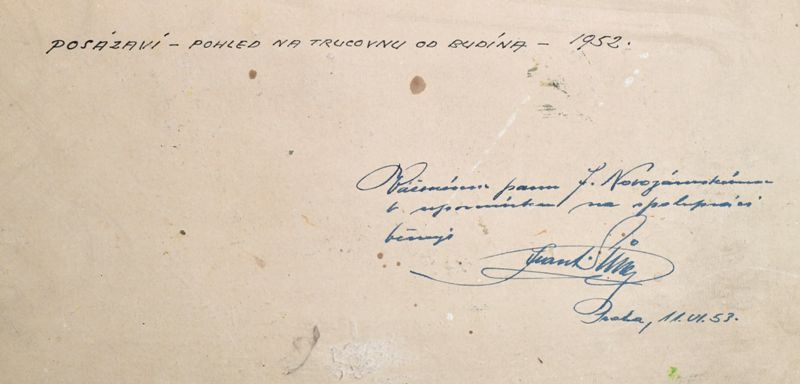 POSÁZAVÍ – POHLED NA TRUCOVNU OD BUDÍNA – 1952.
Váženému panu J. Novozámskému
k upomínku na spolupráci
věnuje
Frant.
Praha, 11.VI.53.